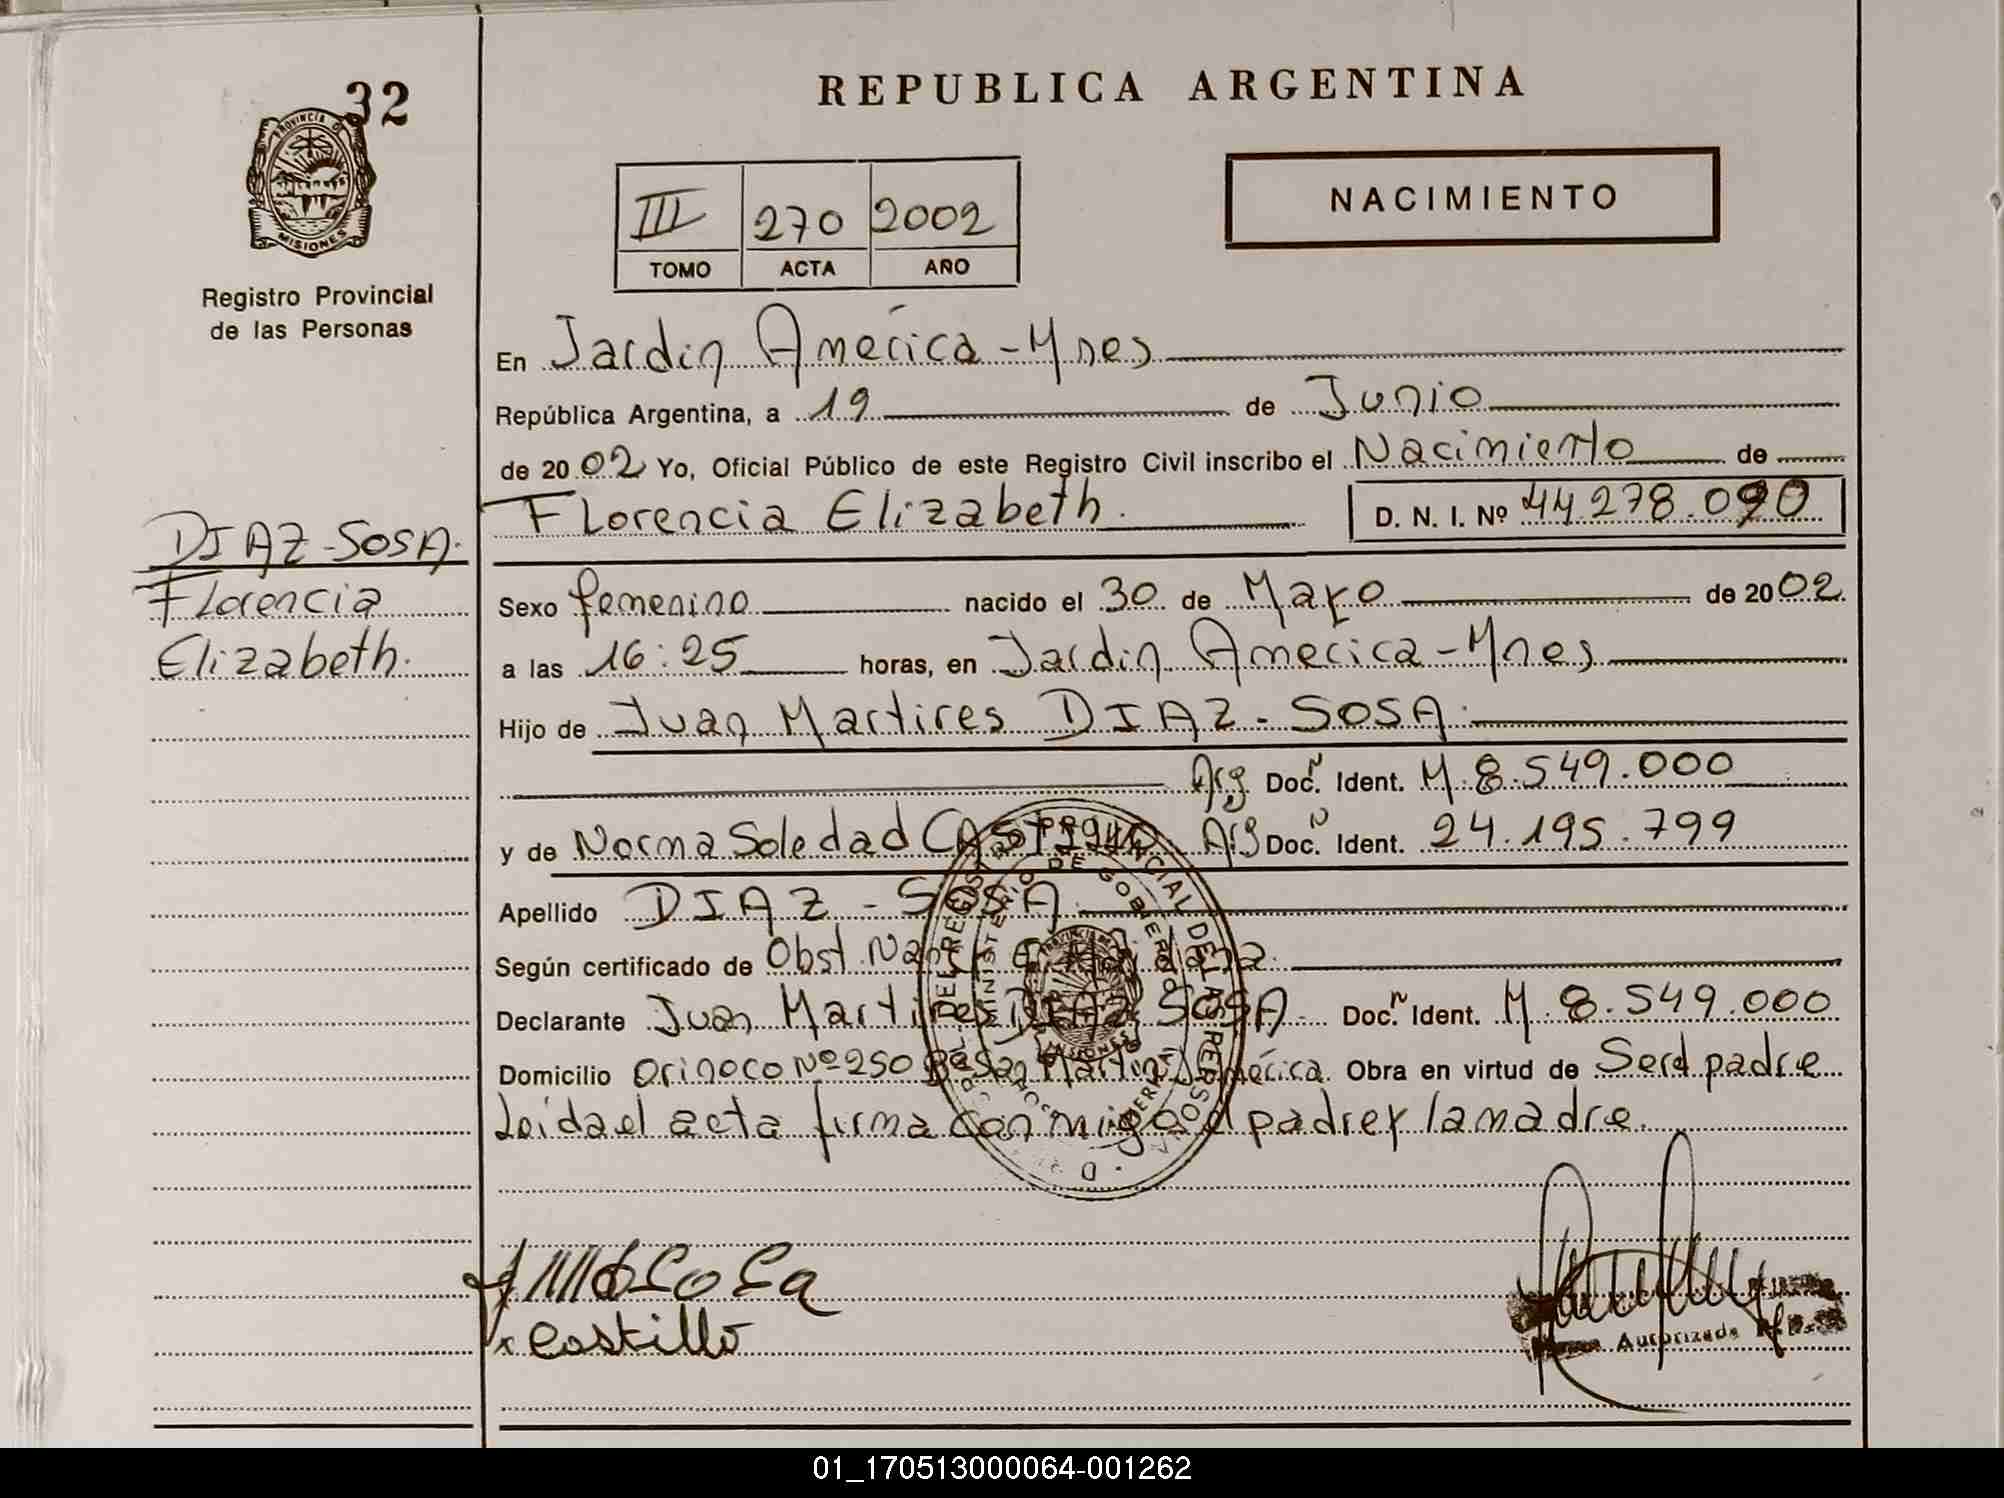 32
PROVINCIA DE
MISIONES
Registro Provincial
de las Personas
REPUBLICA ARGENTINA
NACIMIENTO
III 270 2002
TOMO ACTA AÑO
En Jardin América - Mnes
República Argentina, a 19 de Junio
de 2002 Yo, Oficial Público de este Registro Civil inscribo el Nacimiento de
Florencia Elizabeth. D. N. I. Nº 44.278.090
DIAZ - SOSA.
Florencia
Elizabeth.
Sexo femenino nacido el 30 de Mayo de 2002.
a las 16:25 horas, en Jardin America - Mnes
Hijo de Juan Martires DIAZ - SOSA.
Arg Doc. Ident. M. 8.549.000
y de Norma Soledad CASTILLO Arg Doc. Ident. 24.195.799
Apellido DIAZ - SOSA.
Según certificado de Obst.
Declarante Juan Martires DIAZ SOSA. Doc. Ident. M. 8.549.000
Domicilio Orinoco Nº 250 Bº San Martin J. América. Obra en virtud de Ser el padre
Leida el acta firma conmigo el padre y la madre.
Castillo
Autorizada
01_170513000064-001262